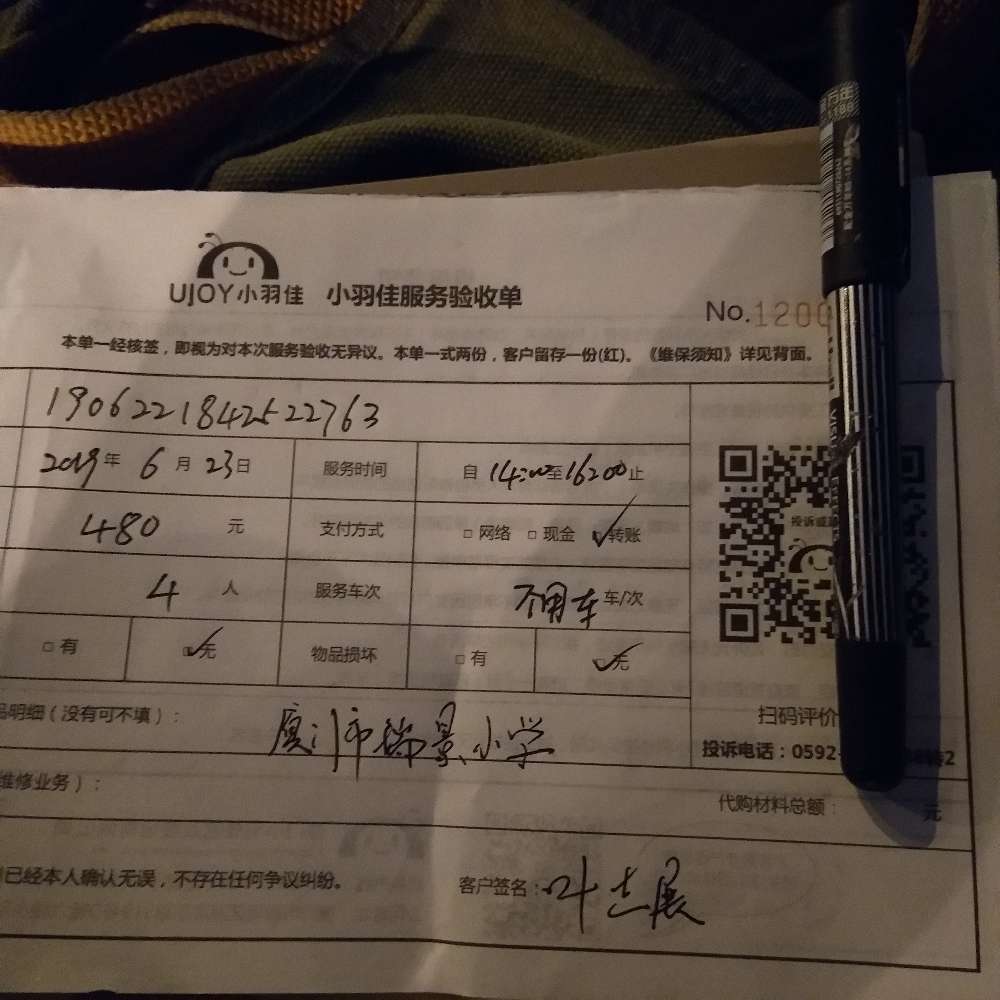 UJOY小羽佳 小羽佳服务验收单
No.1200
本单一经核签，即视为对本次服务验收无异议。本单一式两份，客户留存一份(红)。《维保须知》详见背面。
1906221842522763
2019年 6月 23日 服务时间 自 14:00至16:00止
480 元 支付方式 □ 网络 □ 现金 □ 转账
4 人 服务车次 不用车 车/次
□ 有 □ 无 物品损坏 □ 有 □ 无
品明细（没有可不填）： 厦门市瑞景小学
扫码评价
投诉电话：0592-
维修业务）：
代购材料总额： 元
已经本人确认无误，不存在任何争议纠纷。 客户签名：叶志展